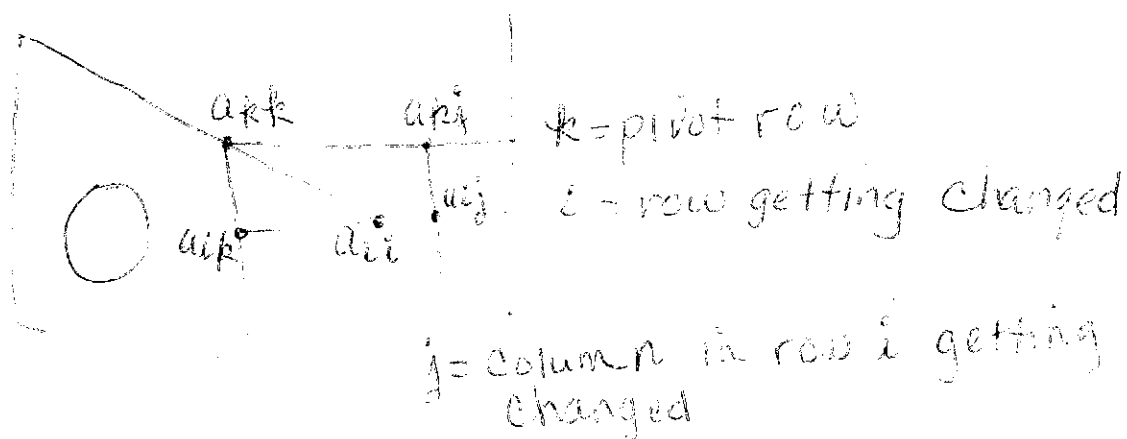 akk akj k = pivot row
aij i - row getting changed
aik aii
j = column in row i getting
changed